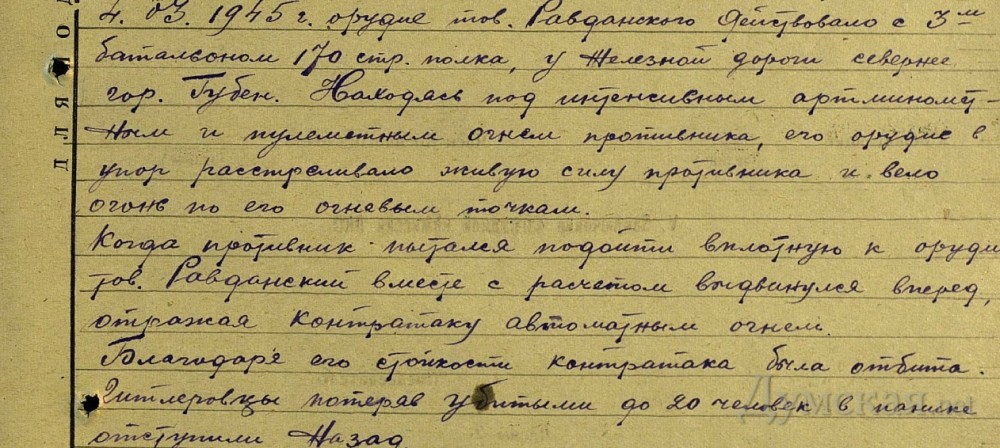 4. 03. 1945 г. орудие тов. Равданского действовало с 3м
батальоном 170 стр. полка, у железной дороги севернее
гор. Губен. Находясь под интенсивным артминомёт-
ным и пулеметным огнем противника, его орудие в
упор расстреливало живую силу противника и вело
огонь по его огневым точкам.
Когда противник пытался подойти вплотную к оруди
тов. Равданский вместе с расчетом выдвинулся вперед,
отражая контратаку автоматным огнем.
Благодаря его стойкости контратака была отбита.
Гитлеровцы потеряв убитыми до 20 человек в панике
отступили назад
ДЛЯ ПО